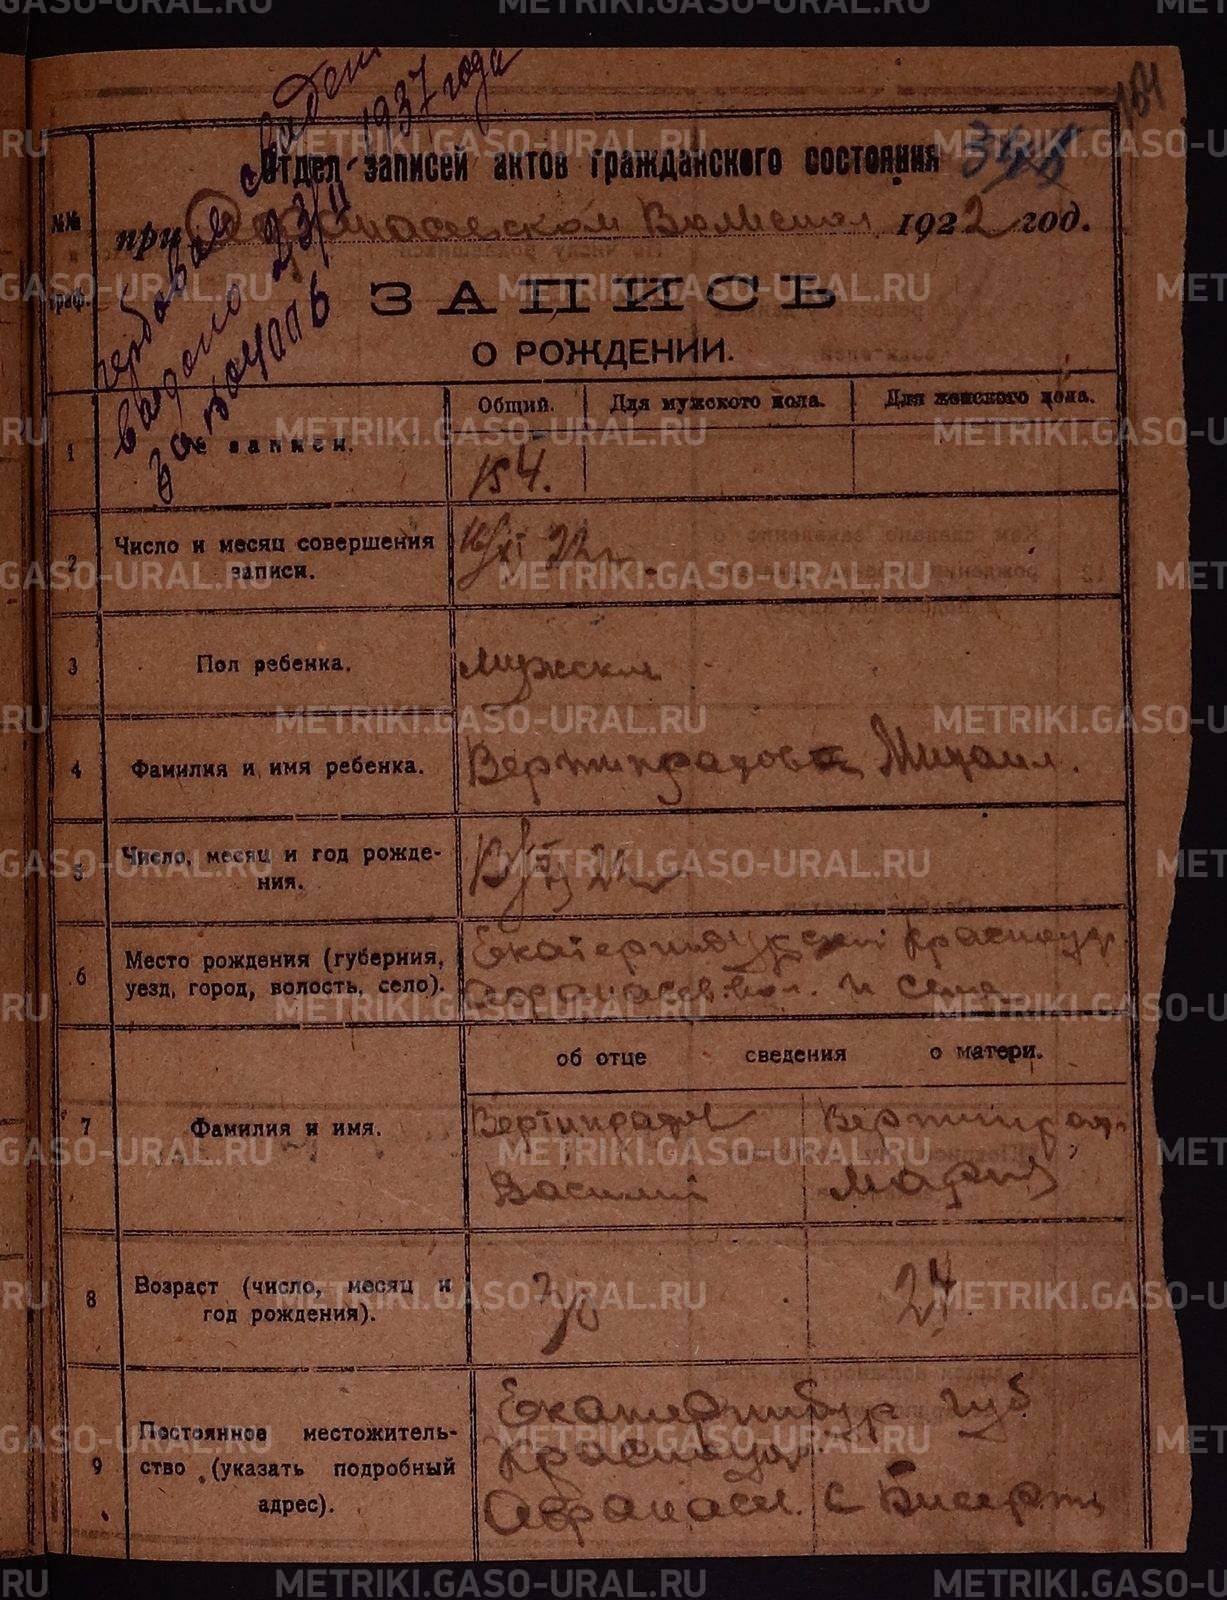 151
Отдел записей актов гражданского состояния
при Афонасевском Волисполк 1922 год.
ЗАПИСЬ
О РОЖДЕНИИ.
гербовое свидет
выдано 23/II 1937 года
за
№№ граф.
Общий. Для мужского пола. Для женского пола.
1 № записи. 154.
2 Число и месяц совершения записи. 16/XI 22 г.
3 Пол ребенка. Мужской
4 Фамилия и имя ребенка. Вертипрахов Михаил.
5 Число, месяц и год рождения. 22 г
6 Место рождения (губерния, уезд, город, волость, село). Екатеринбургской Красноуф.
Афонасев. вол. и села
об отце сведения о матери.
7 Фамилия и имя. Вертипрахов Вертипрах.
Василий Мария
8 Возраст (число, месяц и год рождения). 30 24
9 Постоянное местожительство (указать подробный адрес). Екатеринбур губ
Красноуф.
Афанасев. с Бисерть
METRIKI.GASO-URAL.RU